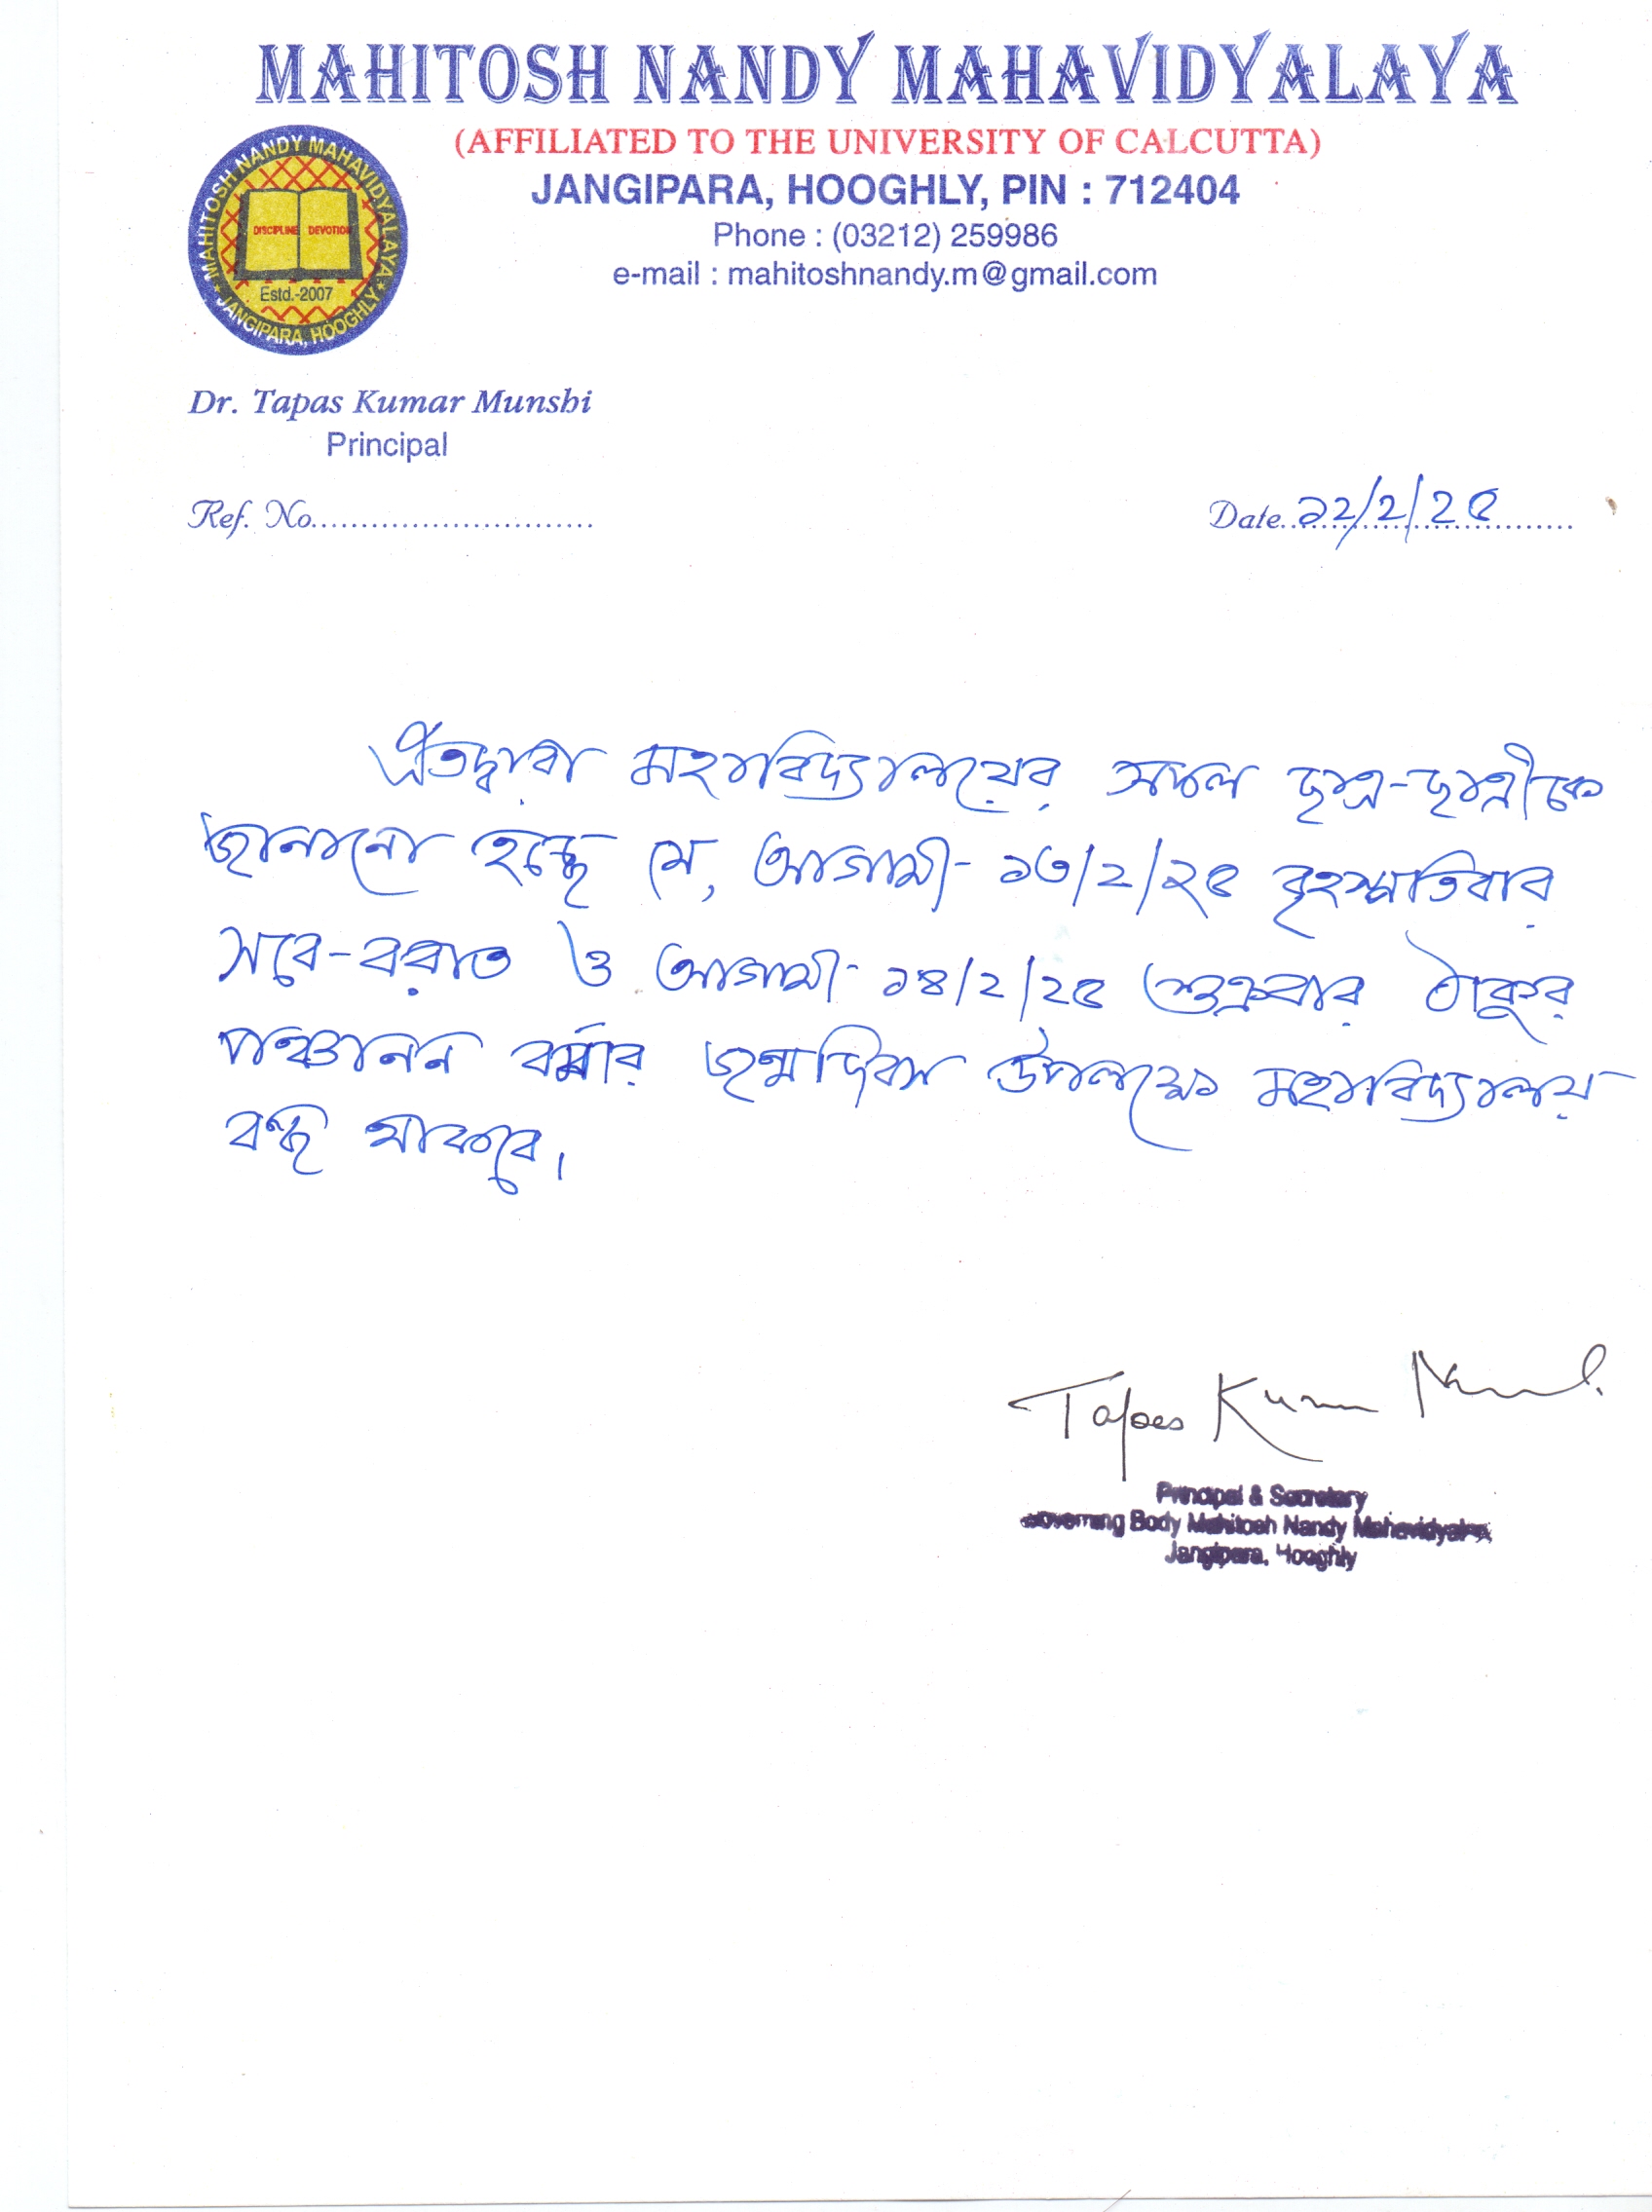 MAHITOSH NANDY MAHAVIDYALAYA
(AFFILIATED TO THE UNIVERSITY OF CALCUTTA)
JANGIPARA, HOOGHLY, PIN : 712404
Phone : (03212) 259986
e-mail : mahitoshnandy.m@gmail.com
MAHITOSH NANDY MAHAVIDYALAYA
DISCIPLINE DEVOTION
Estd.-2007
JANGIPARA, HOOGHLY
Dr. Tapas Kumar Munshi
Principal
Ref. No............................
Date..১২/২/২৫
এতদ্বারা মহাবিদ্যালয়ের সকল ছাত্র-ছাত্রীকে
জানানো হচ্ছে যে, আগামী ১৩/২/২৫ বৃহস্পতিবার
সবে-বরাত ও আগামী ১৪/২/২৫ শুক্রবার ঠাকুর
পঞ্চানন বর্মার জন্মদিবস উপলক্ষ্যে মহাবিদ্যালয়
বন্ধ থাকবে।
Tapas Kumar Munshi
Principal & Secretary
Governing Body Mahitosh Nandy Mahavidyalaya
Jangipara, Hooghly